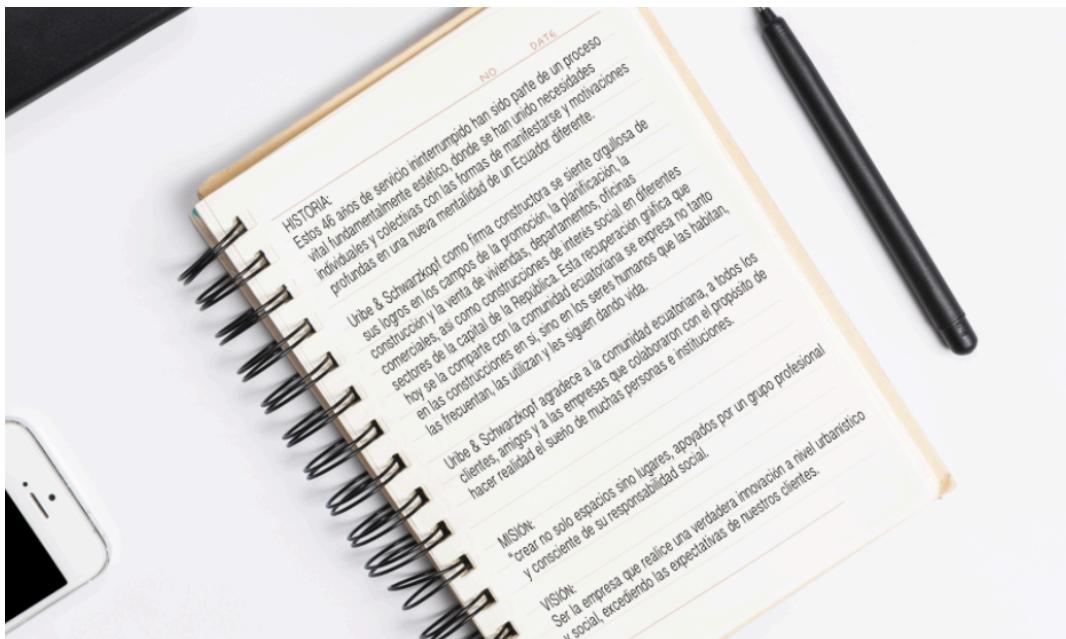 NO DATE
HISTORIA:
Estos 46 años de servicio ininterrumpido han sido parte de un proceso
vital fundamentalmente estético, donde se han unido necesidades
individuales y colectivas con las formas de manifestarse y motivaciones
profundas en una nueva mentalidad de un Ecuador diferente.
Uribe & Schwarzkopf como firma constructora se siente orgullosa de
sus logros en los campos de la promoción, la planificación, la
construcción y la venta de viviendas, departamentos, oficinas
comerciales, así como construcciones de interés social en diferentes
sectores de la capital de la República. Esta recuperación gráfica que
hoy se la comparte con la comunidad ecuatoriana se expresa no tanto
en las construcciones en sí, sino en los seres humanos que las habitan,
las frecuentan, las utilizan y les siguen dando vida.
Uribe & Schwarzkopf agradece a la comunidad ecuatoriana, a todos los
clientes, amigos y a las empresas que colaboraron con el propósito de
hacer realidad el sueño de muchas personas e instituciones.
MISIÓN:
"crear no solo espacios sino lugares, apoyados por un grupo profesional
y consciente de su responsabilidad social.
VISIÓN:
Ser la empresa que realice una verdadera innovación a nivel urbanístico
y social, excediendo las expectativas de nuestros clientes.